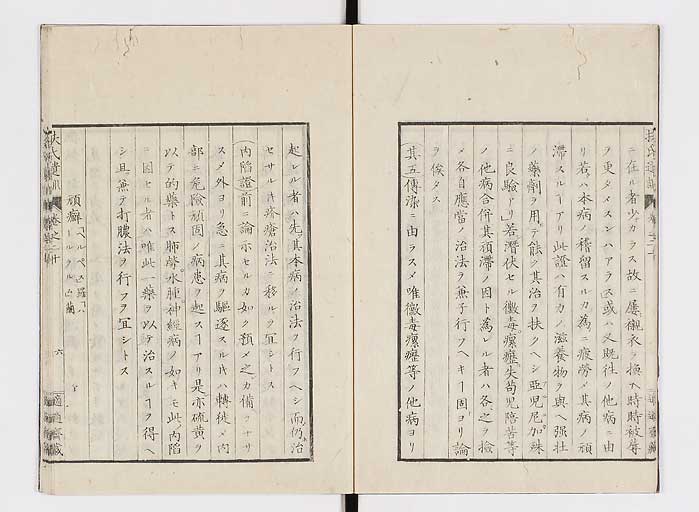 ニ在ル者少カラス故ニ屢襯衣ヲ換ヘ時時被蓐
ヲ更タメスンハアラス或ハ又既往ノ他病ニ由
リ若ハ本病ノ稽留スルカ為ニ疲勞メ其病ノ頑
滞スルヿアリ此證ハ有力ノ滋養物ヲ與ヘ強壮
ノ藥劑ヲ用テ能ク其治ヲ扶クヘシ亞兒尼加殊
ニ良驗アリ若潜伏セル黴毒瘰癧失苟兒陪苦等
ノ他病合併其頑滞ノ因ト為レル者ハ各之ヲ撿
メ各自應當ノ治法ヲ兼子行フヘキヿ固ヨリ論
ヲ俟タス
其五傳染ニ由ラスメ唯黴毒瘰癧等ノ他病ヨリ
起レル者ハ先其本病ノ治法ヲ行フヘシ而仍治
セサルキ疥瘡治法ニ移ルヲ冝シトス
内陥證前ニ論示セルカ如ク預メ之カ備ヲナリ
スメ外ヨリ急ニ其病ヲ驅逐スルキハ轉徙メ内
部ニ危險頑固ノ病患ヲ起スヿアリ是亦硫黄ヲ
以テ的藥トス肺勞水腫神經病ノ如キモ此内陥
ニ因セル者ハ唯此一藥ヲ以テ治スルヿヲ得ヘ
シ且兼テ打膿法ヲ行フヲ冝シトス
頑癬
扶氏遺訓 卷之二十 六 適適齋藏